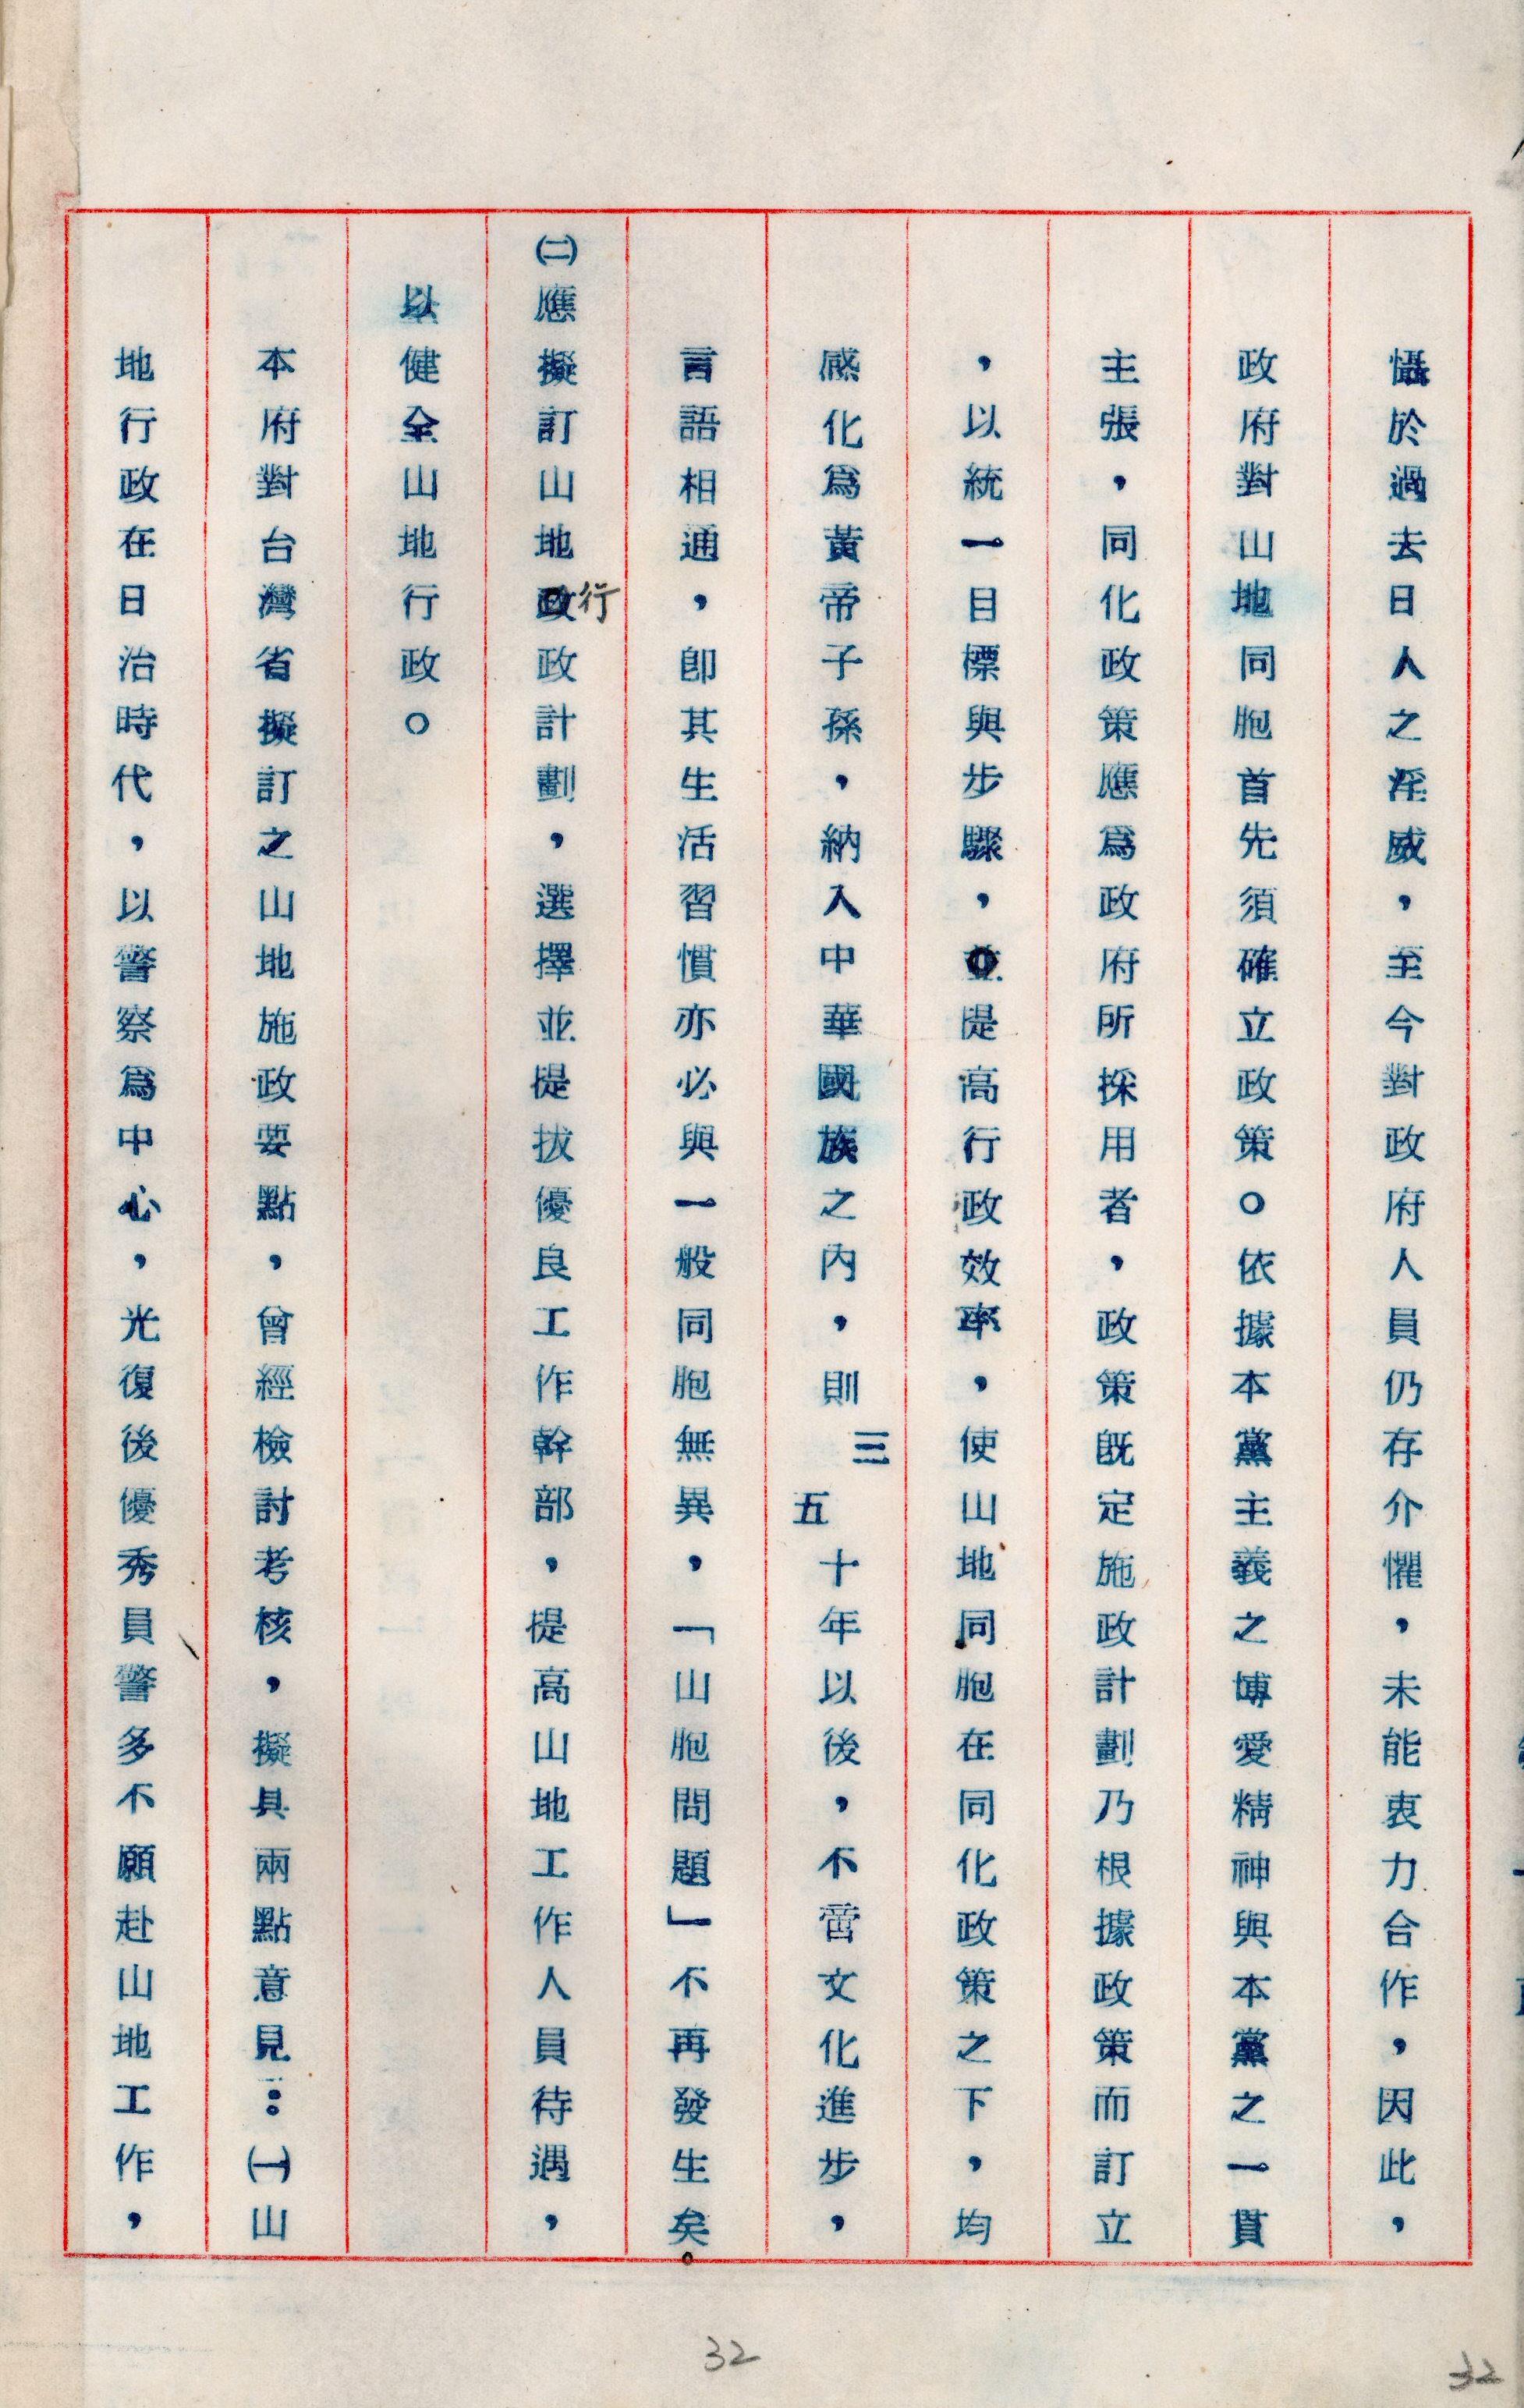 懾於過去日人之淫威，至今對政府人員仍存介懼，未能衷力合作，因此，
政府對山地同胞首先須確立政策。依據本黨主義之博愛精神與本黨之一貫
主張，同化政策應爲政府所採用者，政策既定施政計劃乃根據政策而訂立
，以統一目標與步驟，並提高行政效率，使山地同胞在同化政策之下，均
感化爲黃帝子孫，納入中華國族之內，則三五十年以後，不啻文化進步，
言語相通，卽其生活習慣亦必與一般同胞無異，「山胞問題」不再發生矣。
㈡應擬訂山地行政計劃，選擇並提拔優良工作幹部，提高山地工作人員待遇，
以健全山地行政。
本府對台灣省擬訂之山地施政要點，曾經檢討考核，擬具兩點意見：㈠山
地行政在日治時代，以警察爲中心，光復後優秀員警多不願赴山地工作，
32
32